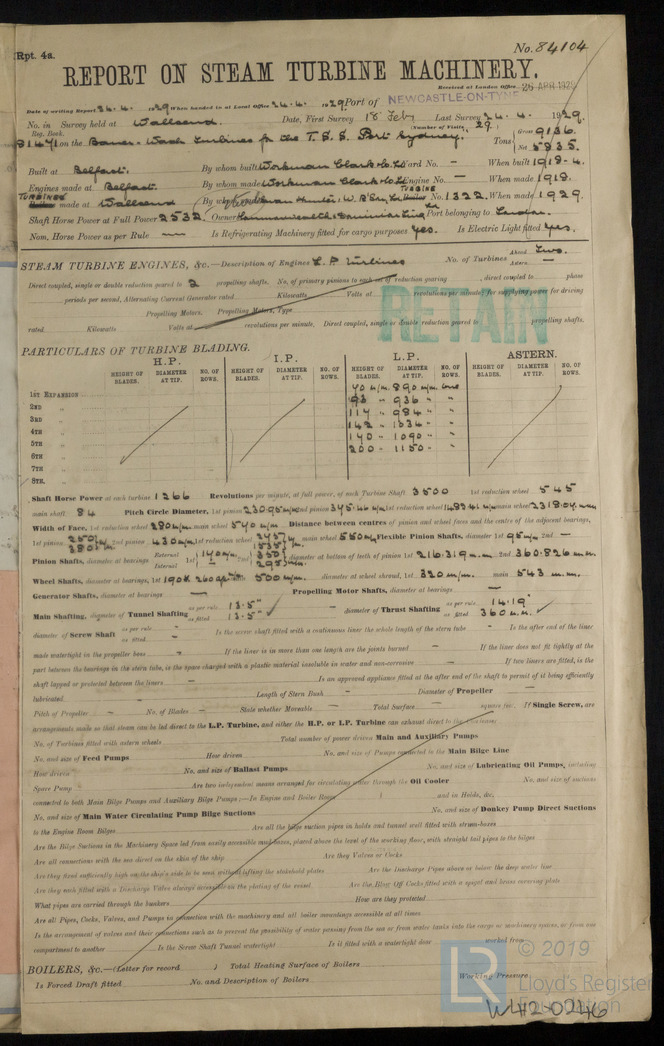 Rpt. 4a.
No. 84104
REPORT ON STEAM TURBINE MACHINERY.
Received at London Office APR 1929
Date of writing Report 24.4. 1929 When handed in at Local Office 24.4. 1929 Port of NEWCASTLE-ON-TYNE
No. in Survey held at Wallsend Date, First Survey 18 Feby Last Survey 24.4. 1929
Reg. Book. (Number of Visits 29)
81471 on the Bauer-Wach Turbines for the T.S.S. Port Sydney Tons Gross 9136 Net 5835
Built at Belfast. By whom built Workman Clark & Co Ltd Yard No. – When built 1918-4.
Engines made at Belfast. By whom made Workman Clark & Co Ltd Engine No. – When made 1918.
TURBINES made at Wallsend By whom made TURBINE No. 1322. When made 1929.
Shaft Horse Power at Full Power 2532. Owners Commonwealth & Dominion Line Ld Port belonging to London.
Nom. Horse Power as per Rule Is Refrigerating Machinery fitted for cargo purposes Yes. Is Electric Light fitted Yes.
STEAM TURBINE ENGINES, &c.—Description of Engines L.P. Turbines No. of Turbines Ahead Two. Astern –
Direct coupled, single or double reduction geared to 2 propelling shafts. No. of primary pinions to each set of reduction gearing direct coupled to phase
periods per second, Alternating Current Generator rated Kilowatts Volts at revolutions per minute for supplying power for driving
Propelling Motors, Type
rated Kilowatts Volts at revolutions per minute. Direct coupled, single or double reduction geared to propelling shafts.
RETAIN
PARTICULARS OF TURBINE BLADING.
H.P. I.P. L.P. ASTERN.
HEIGHT OF BLADES. DIAMETER AT TIP. NO. OF ROWS. HEIGHT OF BLADES. DIAMETER AT TIP. NO. OF ROWS. HEIGHT OF BLADES. DIAMETER AT TIP. NO. OF ROWS. HEIGHT OF BLADES. DIAMETER AT TIP. NO. OF ROWS.
1ST EXPANSION 70 m/m. 890 m/m. one
2ND " 93 " 936 " "
3RD " 117 " 984 " "
4TH " 142 " 1034 " "
5TH " 170 " 1090 " "
6TH " 200 " 1150 " "
7TH "
8TH "
Shaft Horse Power at each turbine 1266 Revolutions per minute, at full power, of each Turbine Shaft 3500 1st reduction wheel 545
main shaft 84 Pitch Circle Diameter, 1st pinion 2nd pinion 1st reduction wheel main wheel
Width of Face, 1st reduction wheel 280 m/m. main wheel 540 m/m. Distance between centres of pinion and wheel faces and the centre of the adjacent bearings,
1st pinion 2nd pinion 430 m/m. 1st reduction wheel main wheel 550 m/m. Flexible Pinion Shafts, diameter 1st 95 m/m. 2nd –
Pinion Shafts, diameter at bearings External 1st 140 m/m. 2nd Internal 1st diameter at bottom of teeth of pinion 1st 216.319 m.m 2nd 360.826 m.m.
Wheel Shafts, diameter at bearings, 1st main 500 m/m. diameter at wheel shroud, 1st 320 m/m. main 543 m.m.
Generator Shafts, diameter at bearings – Propelling Motor Shafts, diameter at bearings –
Main Shafting, diameter of Tunnel Shafting as per rule 13.5" as fitted 13.5" diameter of Thrust Shafting as per rule 14.19" as fitted 360 m.m.
diameter of Screw Shaft as per rule – as fitted – Is the screw shaft fitted with a continuous liner the whole length of the stern tube – Is the after end of the liner
made watertight in the propeller boss – If the liner is in more than one length are the joints burned – If the liner does not fit tightly at the
part between the bearings in the stern tube, is the space charged with a plastic material insoluble in water and non-corrosive – If two liners are fitted, is the
shaft lapped or protected between the liners – Is an approved appliance fitted at the after end of the shaft to permit of it being efficiently
lubricated Length of Stern Bush – Diameter of Propeller –
Pitch of Propeller – No. of Blades – State whether Moveable – Total Surface – square feet. If Single Screw, are
arrangements made so that steam can be led direct to the L.P. Turbine, and either the H.P. or I.P. Turbine can exhaust direct to the Condenser
No. of Turbines fitted with astern wheels Total number of power driven Main and Auxiliary Pumps
No. and size of Feed Pumps How driven No. and size of Pumps connected to the Main Bilge Line
How driven No. and size of Ballast Pumps No. and size of Lubricating Oil Pumps, including
Spare Pump Are two independent means arranged for circulating water through the Oil Cooler No. and size of suctions
connected to both Main Bilge Pumps and Auxiliary Bilge Pumps;—In Engine and Boiler Room and in Holds, &c.
No. and size of Main Water Circulating Pump Bilge Suctions No. and size of Donkey Pump Direct Suctions
to the Engine Room Bilges Are all the bilge suction pipes in holds and tunnel well fitted with strum-boxes
Are the Bilge Suctions in the Machinery Space led from easily accessible mud-boxes, placed above the level of the working floor, with straight tail pipes to the bilges
Are all connections with the sea direct on the skin of the ship Are they Valves or Cocks
Are they fixed sufficiently high on the ship's side to be seen without lifting the stokehold plates Are the Discharge Pipes above or below the deep water line
Are they each fitted with a Discharge Valve always accessible on the plating of the vessel Are the Blow Off Cocks fitted with a spigot and brass covering plate
What pipes are carried through the bunkers How are they protected
Are all Pipes, Cocks, Valves, and Pumps in connection with the machinery and all boiler mountings accessible at all times
Is the arrangement of valves and their connections such as to prevent the possibility of water passing from the sea or from water tanks into the cargo or machinery spaces, or from one
compartment to another Is the Screw Shaft Tunnel watertight Is it fitted with a watertight door worked from
BOILERS, &c.—(Letter for record ) Total Heating Surface of Boilers
Is Forced Draft fitted No. and Description of Boilers Working Pressure
© 2019
Lloyd's Register
Foundation
LR
W42-0246